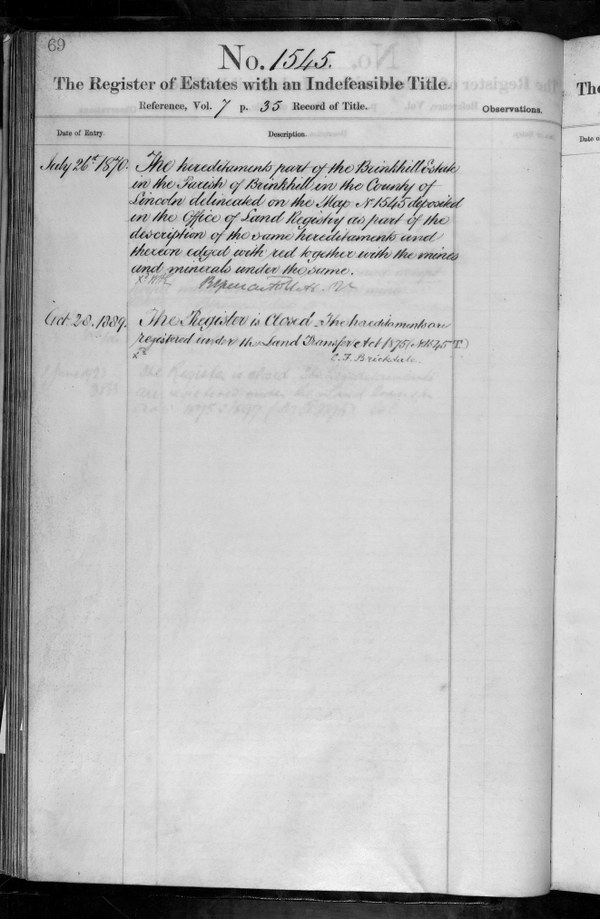 69
No. 1545.
The Register of Estates with an Indefeasible Title.
Reference, Vol. 7 p. 35 Record of Title.
Observations.
Date of Entry.
Description.
July 26th 1870. The hereditaments part of the Brinkhill Estate
in the Parish of Brinkhill in the County of
Lincoln delineated on the Map No 1545 deposited
in the Office of Land Registry as part of the
description of the same hereditaments and
thereon edged with red together with the mines
and minerals under the same.
Oct 28. 1889. The Register is Closed. The hereditaments are
registered under the Land Transfer Act 1875 (No 1545 T.)
C. F. Brickdale
The
Date o